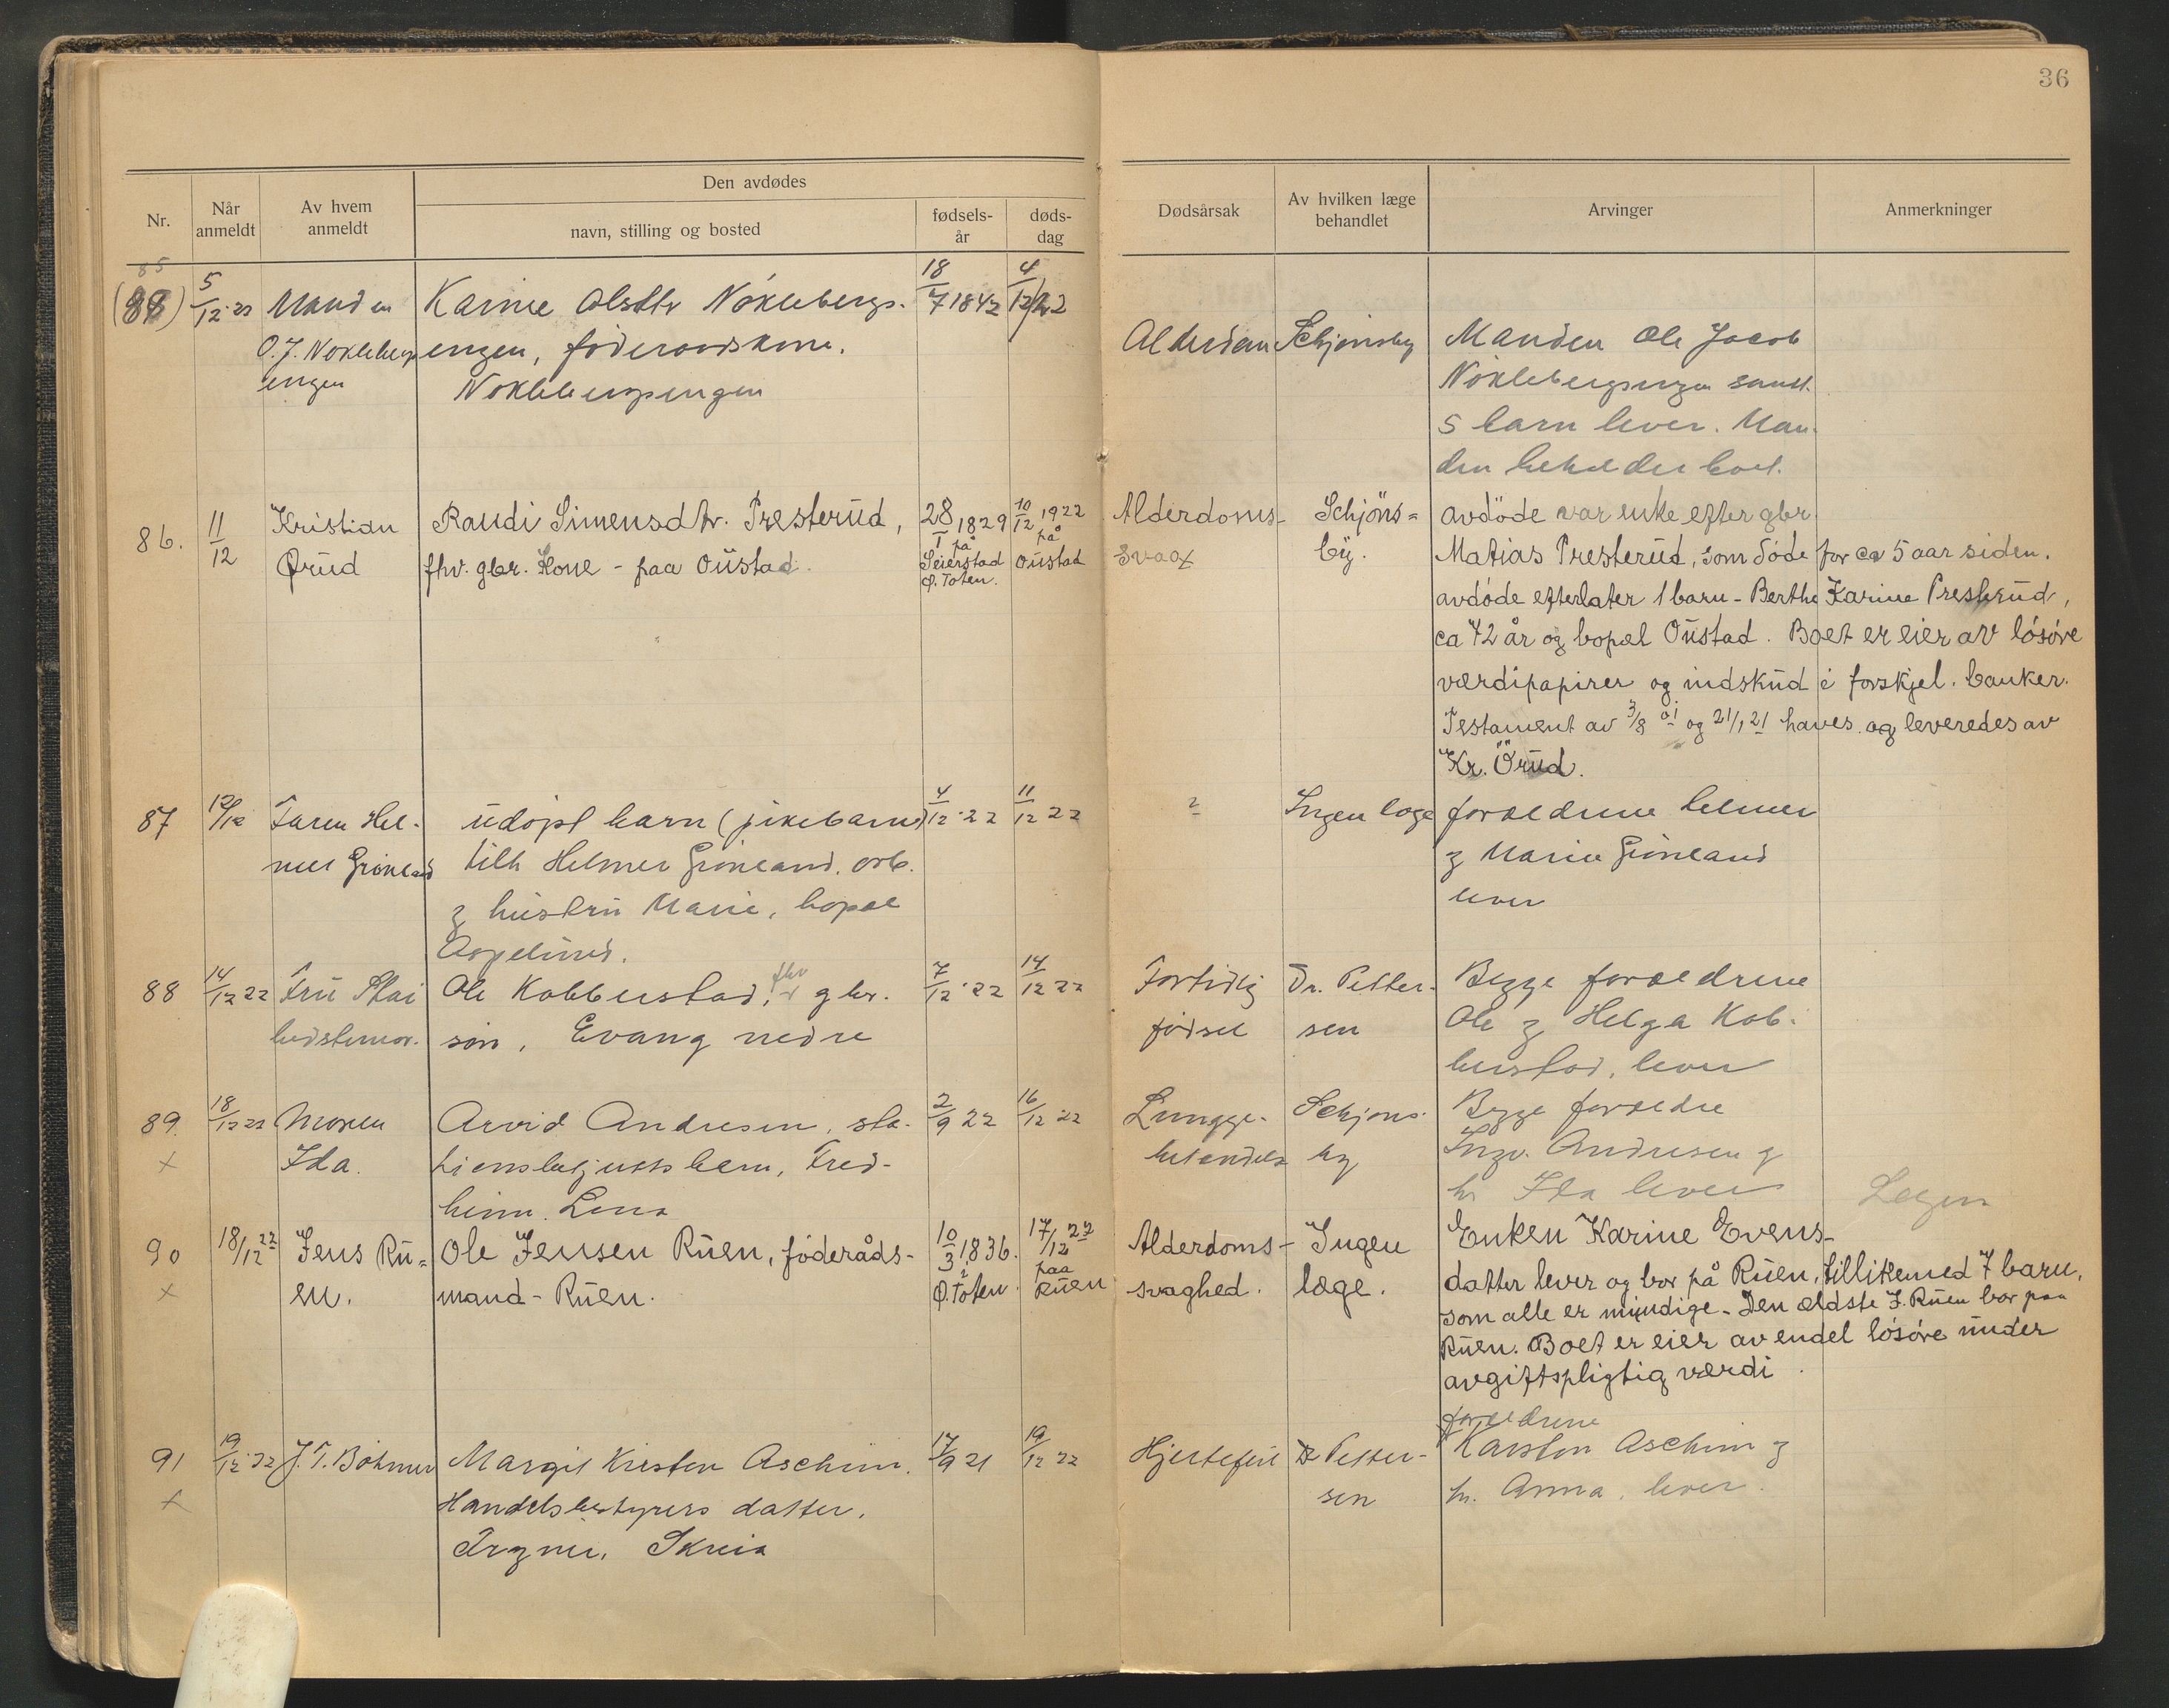 36
Nr.
Når anmeldt
Av hvem anmeldt
Den avdødes
navn, stilling og bosted
fødsels-år
døds-dag
Dødsårsak
Av hvilken læge behandlet
Arvinger
Anmerkninger
85
5/12 22
Manden
O. J. Nøkleberg
engen
Karine Olsdtr Nøklebergs-
engen, føderaadskone.
Nøklebergengen
18/7 1842
4/12 22
Alderdom
Schjønsby
Manden Ole Jacob
Nøklebergsengen samt
5 barn lever. Man-
den beholder boet.
86.
11/12
Kristian
Ørud
Randi Simensdtr. Presterud,
fhv. gbr. Kone - paa Oustad.
28/1 1829
på
Seierstad
Ø. Toten.
10/12 1922
på
Oustad
Alderdoms-
svag
Schjöns=
by.
avdöde var enke efter gbr.
Matias Presterud, som döde for ca 5 aar siden.
avdöde efterlater 1 barn - Berthe Karine Presterud,
ca 72 år og bopæl Oustad. Boet er eier av lösöre
værdipapirer og indskud i forskjel. banker.
Testament av 3/8 01 og 21/1 21 haves og leveredes av
Kr. Örud.
87
12/12
Faren Hel-
mer Grönland
udöpt barn (pikebarn)
tilh Helmer Grönland. arb.
og hustru Marie, bopæl
4/12 22
11/12 22
?
Ingen læge
forældrene Helmer
og Marie Grönland
lever
88
14/12 22
Fru Stai
bedstemor.
Ole Kobberstad, fhv gbr.
søn, Evang nedre
7/12 22
14/12 22
Fortidlig
födsel
Dr. Petter-
sen
Begge forældrene
Ole og Helga Kob-
berstad, lever
89.
x
18/12 22
Moren
Ida.
Arvid Andresen, sta-
tionsbetjents barn, Fred-
heim. Lena
2/9 22
16/12 22
Lungge-
betændels
Schjøns-
by
Begge forældre
Ingv. Andresen og
h. Ida lever
Lægen
90
x
18/12 22
Jens Ru=
en.
Ole Jensen Ruen, föderåds-
mand - Ruen.
10/3 1836.
i
Ø. Toten
17/12 22
paa
Ruen
Alderdoms-
svaghed.
Ingen
læge.
Enken Karine Evens-
datter lever og bor på Ruen, tillikemed 7 barn,
som alle er myndige. Den ældste J. Ruen bor paa
Ruen. Boet er eier av endel lösöre under
avgiftspligtig værdi.
91
x
19/12 22
J. T. Böhmer
Margit Kirsten Aschim.
Handelsbestyrers datter.
Skreia
17/9 21
19/12 22
Hjertefeil
Dr Petter-
sen
forældrene
Karsten Aschim og
h. Anna, lever.